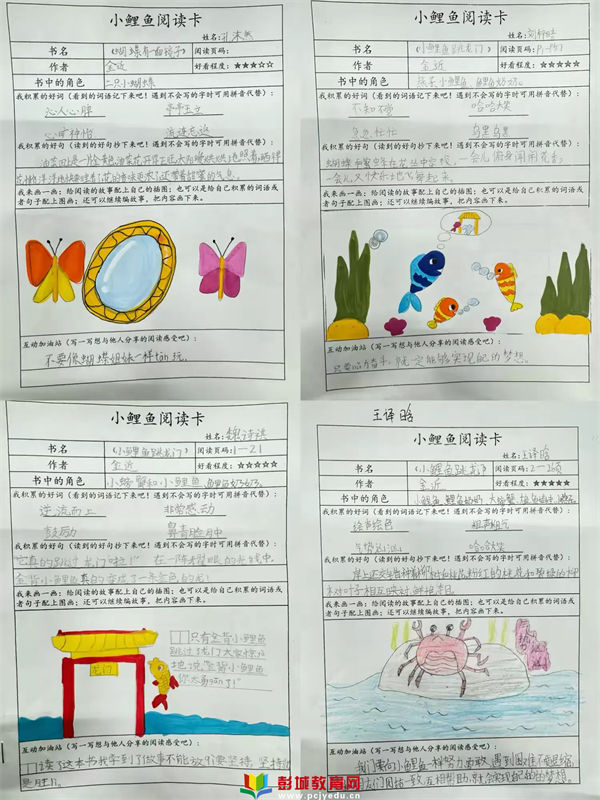 小鲤鱼阅读卡
姓名:孔沐然
书名 《蝴蝶有一面镜子》 阅读页码:
作者 金近 好看程度:★★★☆☆
书中的角色 二只小蝴蝶
我积累的好词(看到的词语记下来吧!遇到不会写的字时可用拼音代替):
沁人心脾 亭亭玉立
心旷神怡 流连忘返
我积累的好句(看到的好句抄下来吧!遇到不会写的字时可用拼音代替):
我来画一画:给阅读的故事配上自己的插图;也可以是给自己积累的词语或
者句子配上图画;还可以继续编故事,把内容画下来。
互动加油站(写一写想与他人分享的阅读感受吧):
不要像蝴蝶姐妹一样tān玩。
小鲤鱼阅读卡
姓名:
书名 《小鲤鱼跳龙门》 阅读页码:
作者 金近 好看程度:★★★★☆
书中的角色
我积累的好词(看到的词语记下来吧!遇到不会写的字时可用拼音代替):
不知不觉 哈哈大笑
急急忙忙
我积累的好句(看到的好句抄下来吧!遇到不会写的字时可用拼音代替):
一会儿又快乐地飞舞起来。
我来画一画:给阅读的故事配上自己的插图;也可以是给自己积累的词语或
者句子配上图画;还可以继续编故事,把内容画下来。
互动加油站(写一写想与他人分享的阅读感受吧):
只要努力奋斗,就一定能够实现自己的梦想。
小鲤鱼阅读卡
姓名:魏诗琪
书名 《小鲤鱼跳龙门》 阅读页码:1—21
作者 金近 好看程度:★★★★★
书中的角色 小螃蟹和小鲤鱼、鲤鱼奶奶。
我积累的好词(看到的词语记下来吧!遇到不会写的字时可用拼音代替):
逆流而上 非常感动
鼓励 鼻青脸肿
我积累的好句(看到的好句抄下来吧!遇到不会写的字时可用拼音代替):
金背小鲤鱼真的变成了一条金色的龙!
我来画一画:给阅读的故事配上自己的插图;也可以是给自己积累的词语或
者句子配上图画;还可以继续编故事,把内容画下来。
龙门
只有金背小鲤鱼
跳过龙门大家惊讶
地说金背小鲤鱼
你太勇gǎn了!"
互动加油站(写一写想与他人分享的阅读感受吧):
读了这本书我学到了做事不能放弃要坚持,坚持就
是胜利。
王译晗
小鲤鱼阅读卡
姓名:王译晗
书名 《小鲤鱼跳龙门》 阅读页码:2—26页
作者 金近 好看程度:★★★★★
书中的角色
我积累的好词(看到的词语记下来吧!遇到不会写的字时可用拼音代替):
绘声绘色 粗声粗气
哈哈大笑
我积累的好句(看到的好句抄下来吧!遇到不会写的字时可用拼音代替):
我来画一画:给阅读的故事配上自己的插图;也可以是给自己积累的词语或
者句子配上图画;还可以继续编故事,把内容画下来。
互动加油站(写一写想与他人分享的阅读感受吧):
我们要向小鲤鱼一样努力勇敢,遇到困难不要退缩,
彭城教育网
www.pcjyedu.cn